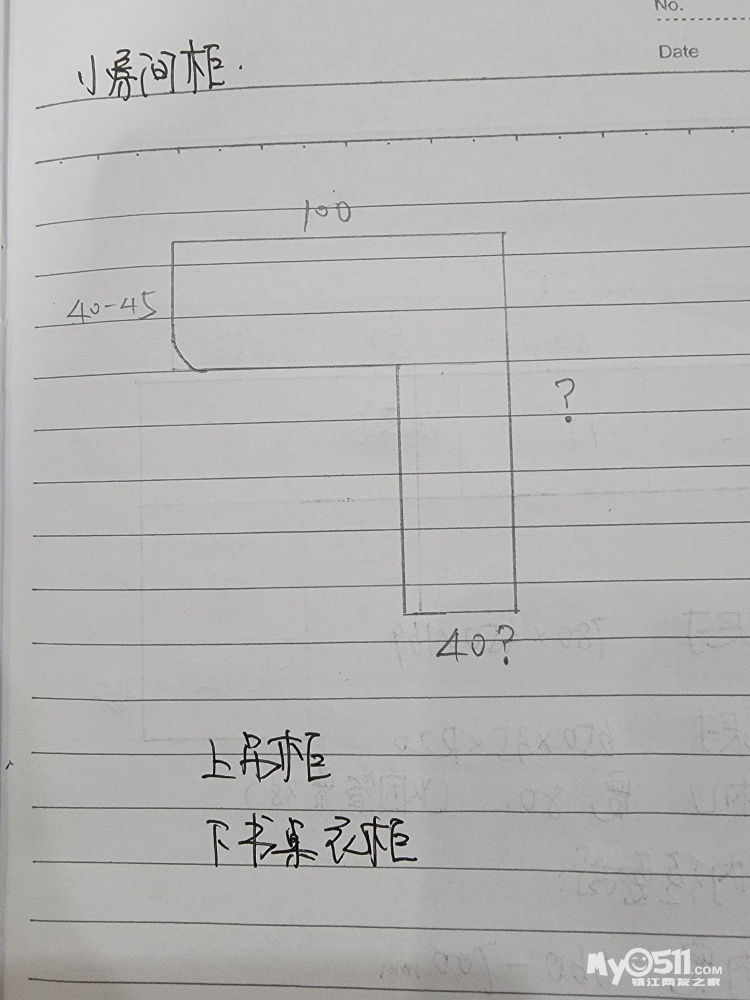 No.
Date
小房间柜.
100
40-45
?
40?
上吊柜
下书桌衣柜
MY0511.COM
镇江网友之家